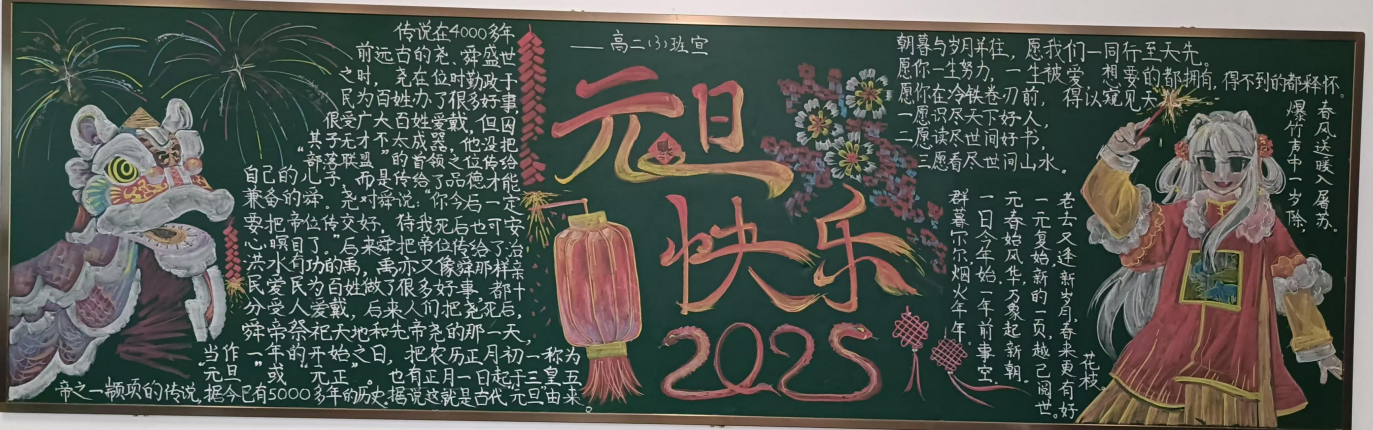 传说在4000多年
前远古的尧、舜盛世
之时，尧在位时勤政于
民为百姓办了很多好事
很受广大百姓爱戴，但因
其子无才不太成器，他没把
“部落联盟”的首领之位传给
自己的儿子，而是传给了品德才能
兼备的舜。尧对舜说：“你今后一定
要把帝位传交好，待我死后也可安
心瞑目了。”后来舜把帝位传给了治
洪水有功的禹，禹亦又像舜那样亲
民爱民为百姓做了很多好事，都十
分受人爱戴，后来人们把尧死后，
舜帝祭祀天地和先帝尧的那一天，
当作一年的开始之日，把农历正月初一称为
“元旦”或“元正”。也有正月一日起于三皇五
帝之一颛顼的传说。据今已有5000多年的历史。据说这就是古代“元旦”由来。
——高二（3）班宣
元旦
快乐
2025
朝暮与岁月并往，愿我们一同行至天光。
愿你一生努力，一生被爱，想要的都拥有，得不到的都释怀。
愿你在冷铁卷刃前，得以窥见天光
一愿识尽天下好人，
二愿读尽世间好书，
三愿看尽世间山水。
春风送暖入屠苏。
爆竹声中一岁除，
老去又逢新岁月，春来更有好
花枝。
一元复始新的一页，越己阅世。
元春始风华，万象起新朝。
一日今年始，一年前事空，
群暮尔尔，烟火年年。